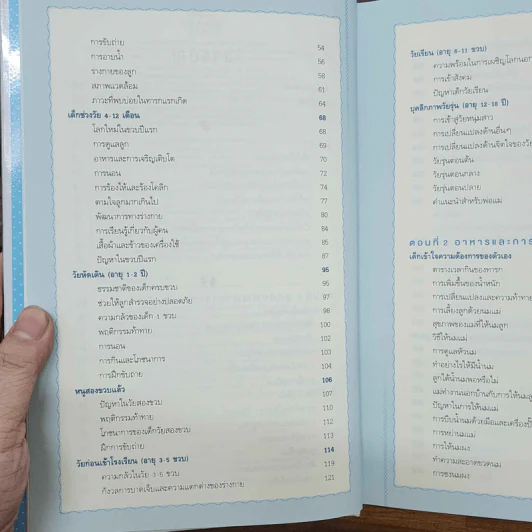 การขับถ่าย 54
การอาบน้ำ 56
ร่างกายของลูก 58
สภาพแวดล้อม 61
ภาวะที่พบบ่อยในทารกแรกเกิด 64
เด็กช่วงวัย 4-12 เดือน 68
โลกใหม่ในขวบปีแรก 68
การดูแลลูก 69
อาหารและการเจริญเติบโต 70
การนอน 72
การร้องไห้และร้องโคลิก 74
ตามใจลูกมากเกินไป 77
พัฒนาการทางร่างกาย 80
การเรียนรู้เกี่ยวกับผู้คน 84
เสื้อผ้าและข้าวของเครื่องใช้ 85
ปัญหาในขวบปีแรก 87
วัยหัดเดิน (อายุ 1-2 ปี) 95
ธรรมชาติของเด็กครบขวบ 95
ช่วยให้ลูกสำรวจอย่างปลอดภัย 97
ความกลัวของเด็ก 1 ขวบ 98
พฤติกรรมท้าทาย 100
การนอน 103
การกินและโภชนาการ 104
การฝึกขับถ่าย 106
หนูสองขวบแล้ว 106
ปัญหาในวัยสองขวบ 107
พฤติกรรมท้าทาย 110
โภชนาการของเด็กวัยสองขวบ 112
ฝึกการขับถ่าย 113
วัยก่อนเข้าโรงเรียน (อายุ 3-5 ขวบ) 114
ความกลัวในวัย 3-5 ขวบ 119
กังวลการบาดเจ็บและความแตกต่างของร่างกาย 121
วัยเรียน (อายุ 6-11 ขวบ)
ความพร้อมในการเผชิญโลกนอก
การเข้าสังคม
ปัญหาเด็กวัยเรียน
บุคลิกภาพวัยรุ่น (อายุ 12-18 ปี)
การเข้าสู่วัยหนุ่มสาว
การเปลี่ยนแปลงด้านอื่นๆ
การเปลี่ยนแปลงด้านจิตใจของวัย
วัยรุ่นตอนต้น
วัยรุ่นตอนกลาง
วัยรุ่นตอนปลาย
คำแนะนำสำหรับพ่อแม่
ตอนที่ 2 อาหารและการ
เด็กเข้าใจความต้องการของตัวเอง
ตารางเวลากินของทารก
การเพิ่มขึ้นของน้ำหนัก
การเปลี่ยนแปลงและความท้าทาย
การเลี้ยงลูกด้วยนมแม่
สุขภาพของแม่ที่ให้นมลูก
วิธีให้นมแม่
การดูแลหัวนม
ทำอย่างไรให้มีน้ำนม
ลูกได้น้ำนมพอหรือไม่
แม่ทำงานนอกบ้านกับการให้นมลูก
ปัญหาในการให้นมแม่
การปั๊มน้ำนมด้วยมือและเครื่องปั๊
การหย่านมแม่
การให้นมผง
ทำความสะอาดขวดนม
การชงนมผง